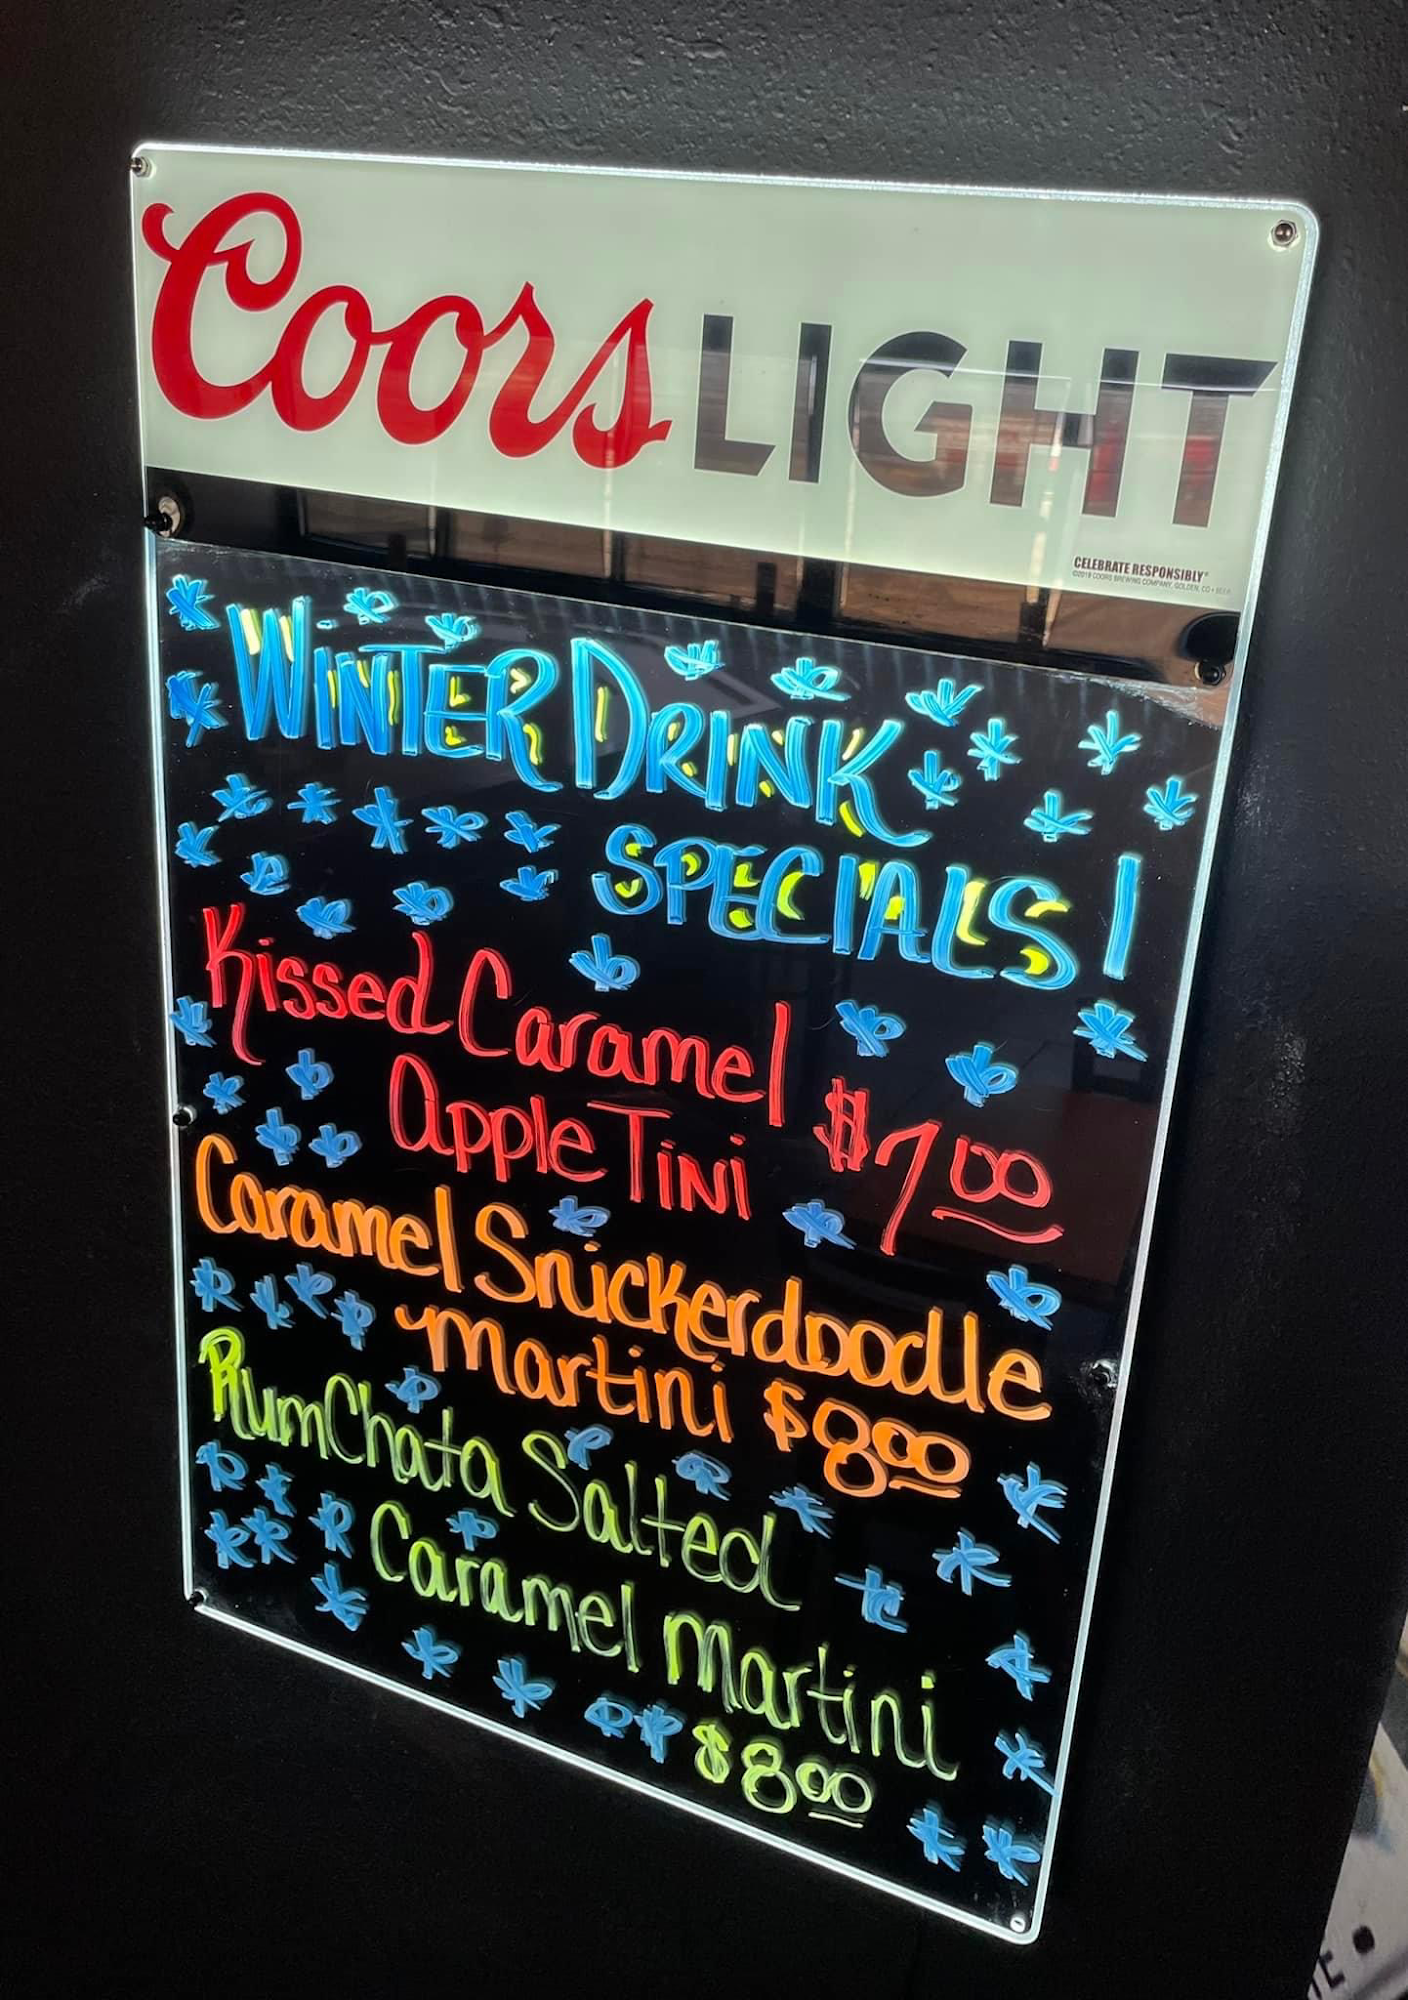 Coors LIGHT
CELEBRATE RESPONSIBLY®
©2019 COORS BREWING COMPANY, GOLDEN, CO • BEER
WINTER DRINK
SPECIALS!
Kissed Caramel
Apple Tini $7.00
Caramel Snickerdoodle
Martini $8.00
RumChata Salted
Caramel Martini
$8.00